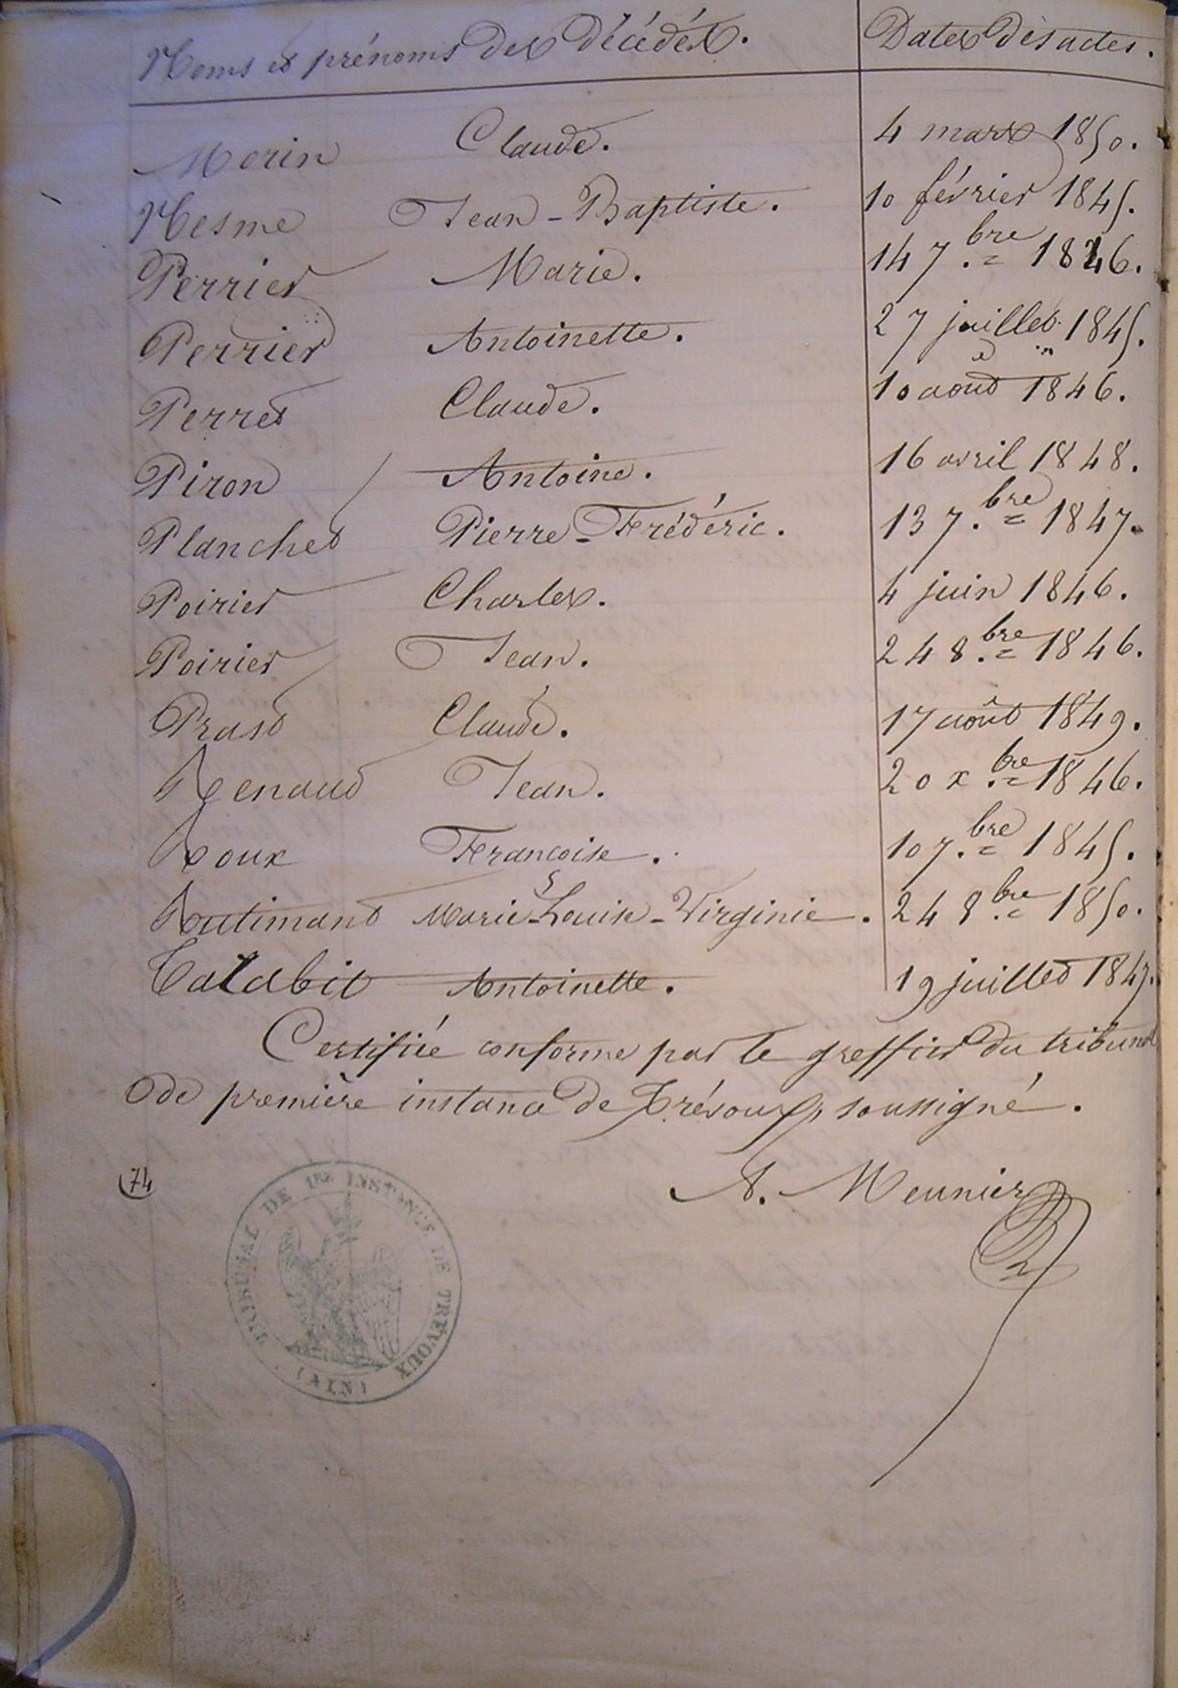 Noms et prénoms des décédés. Dates des actes.
Morin Claude. 4 mars 1850.
Nesme Jean-Baptiste. 10 février 1845.
Perrier Marie. 14 7.bre 1846.
Perrier Antoinette. 27 juillet 1845.
Perret Claude. 10 août 1846.
Piron Antoine. 16 avril 1848.
Planchet Pierre-Frédéric. 13 7.bre 1847.
Poirier Charles. 4 juin 1846.
Poirier Jean. 24 8.bre 1846.
Prast Claude. 17 août 1849.
Renaud Jean. 20 x.bre 1846.
Roux Françoise. 10 7.bre 1845.
Routimand Marie-Louise-Virginie. 24 8.bre 1850.
Talabit Antoinette. 19 juillet 1847.
Certifiée conforme par le greffier du tribunal
de première instance de Trévoux, soussigné.
A. Meunier
74
TRIBUNAL DE 1RE INSTANCE DE TRÉVOUX
(AIN)